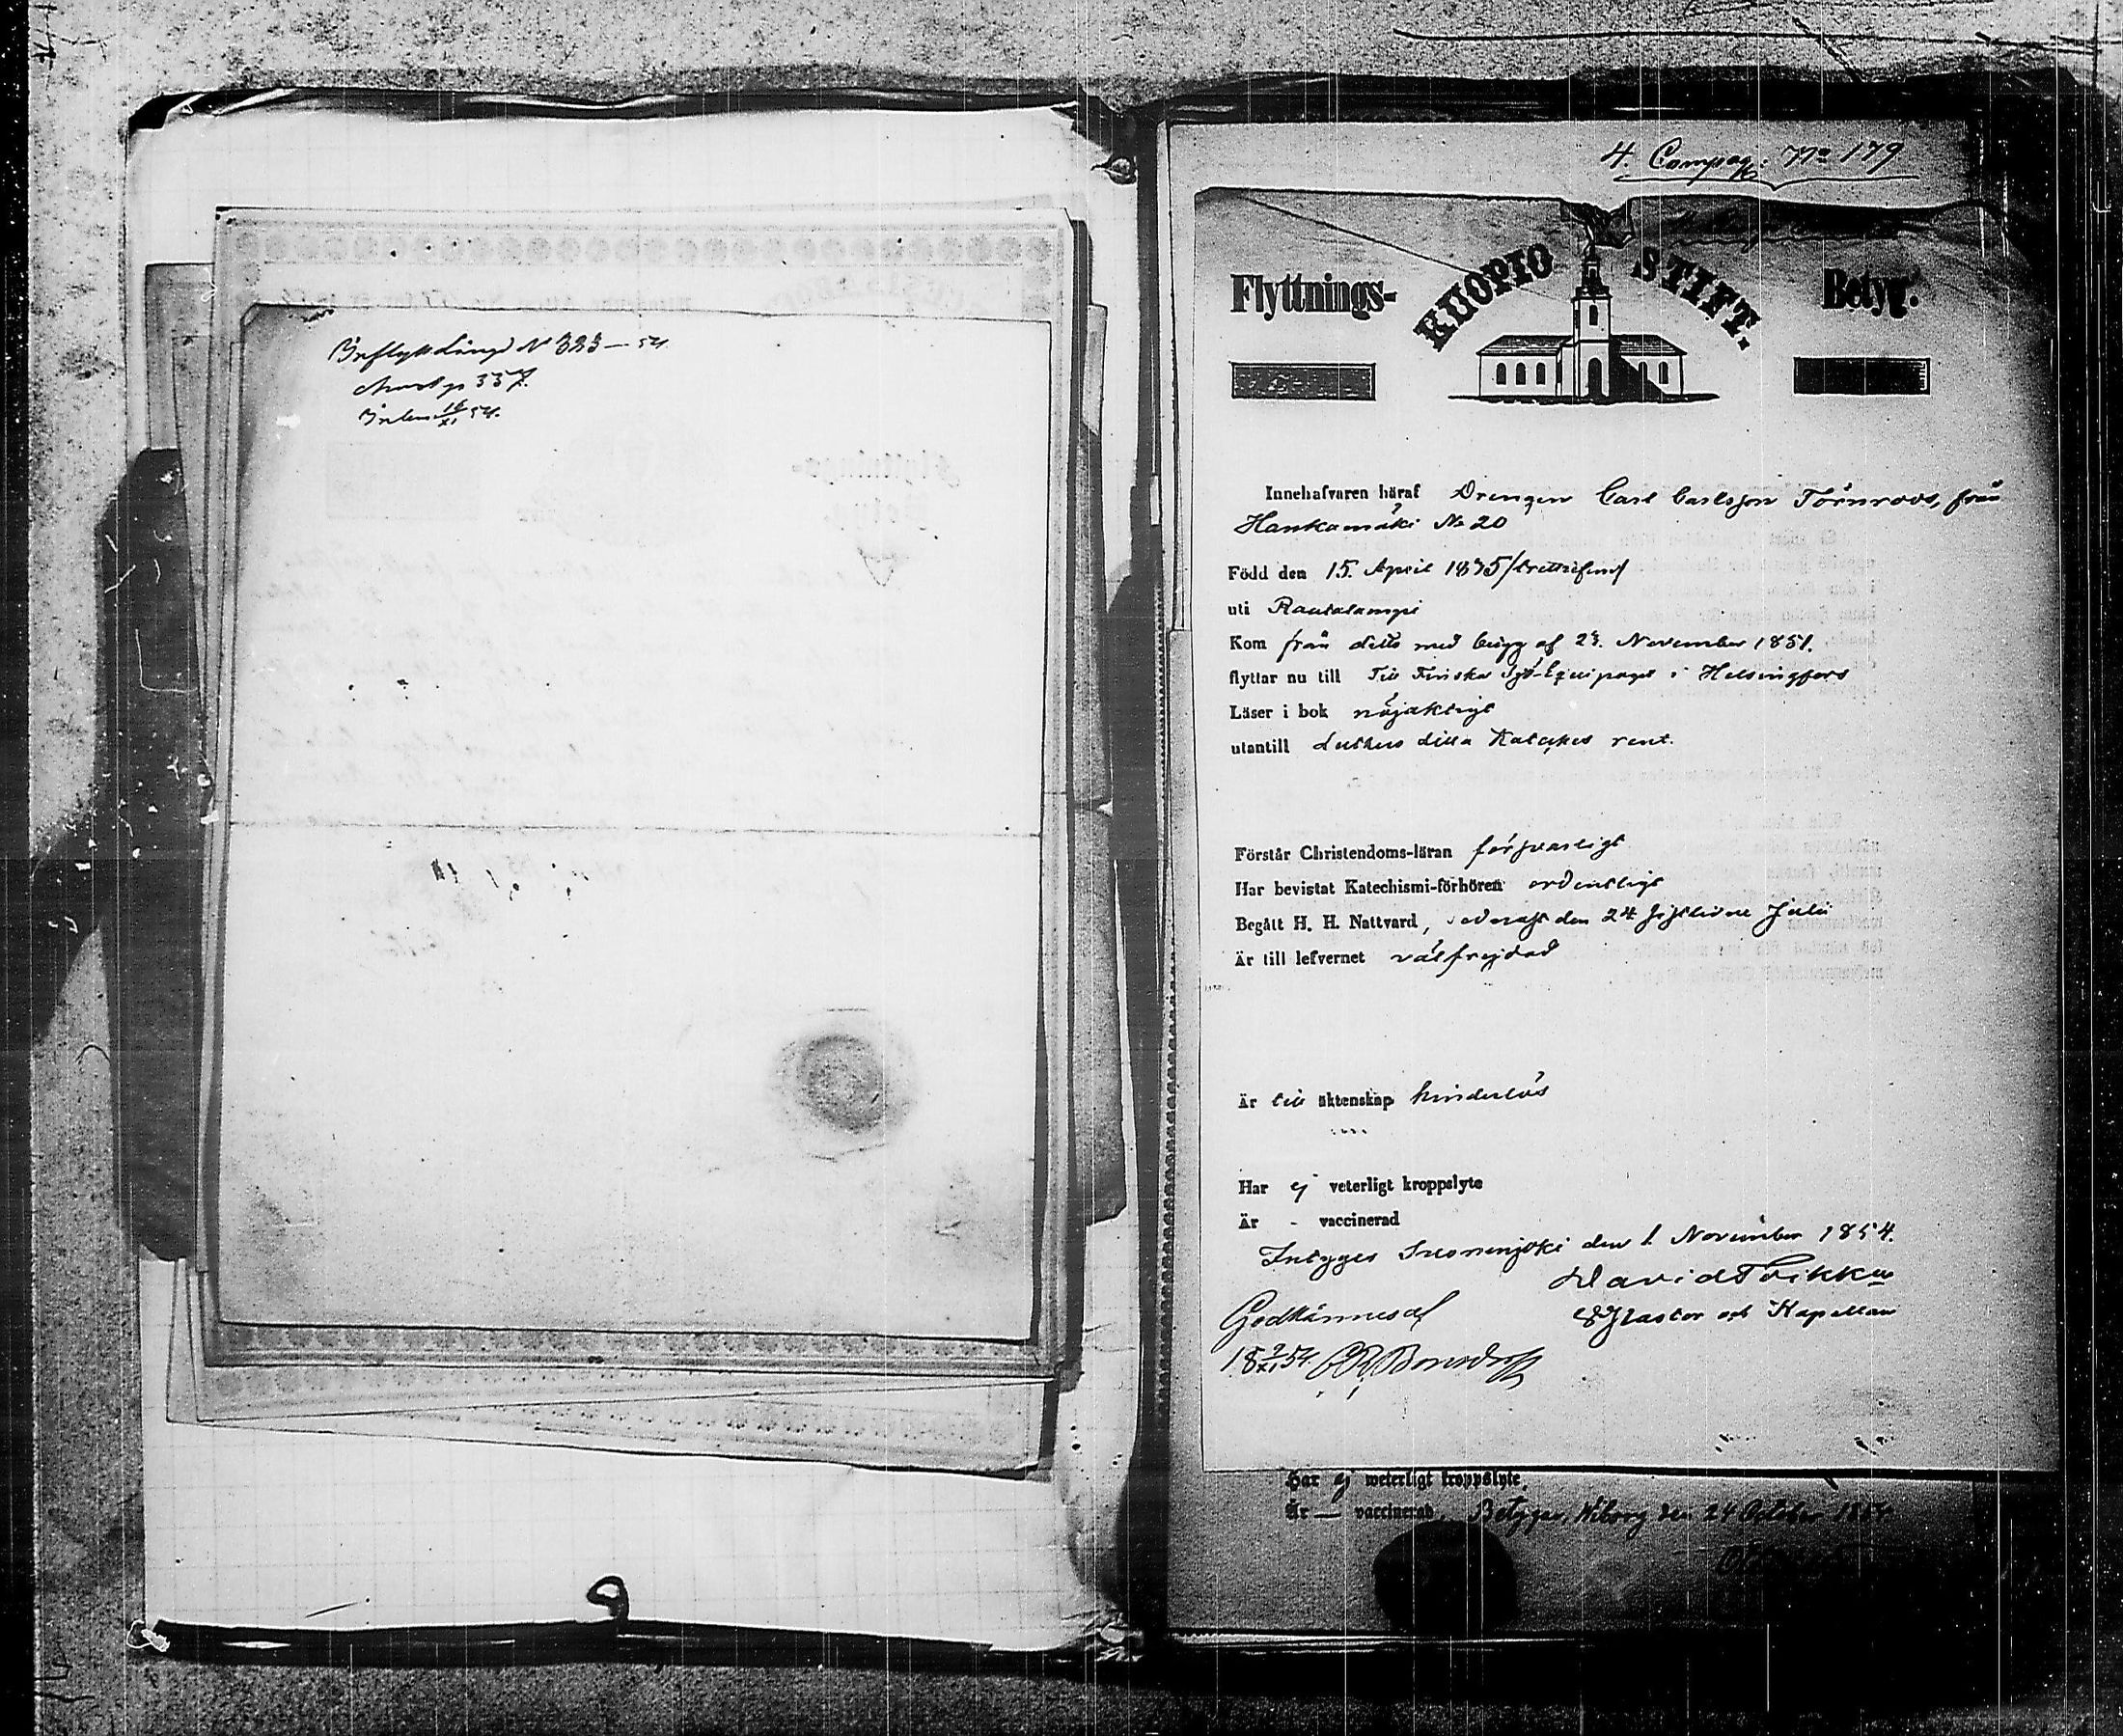 Inflytt Längd No 323 — 54
pag 337.
Inlem 16/XI 54.
4. Compag: No 179
Flyttnings- KUOPIO STIFT. Betyg.
Innehafvaren häraf Drengen Carl Carlsson Törnroos, från
Hankamäki No 20
Född den 15. April 1835/trettiofem/
uti Rautalampi
Kom från ditto med betyg af 23. November 1851.
flyttar nu till Till Finska Sjö-Equipaget i Helsingfors
Läser i bok nöjaktigt
utantill Luthers lilla Kateches rent.
Förstår Christendoms-läran försvarligt
Har bevistat Katechismi-förhören ordentligt
Begått H. H. Nattvard, sednast den 24 sistlidne Julii
Är till lefvernet välfrejdad
Är till äktenskap hinderlös
Har ej veterligt kroppslyte
Är - vaccinerad
Intygges Suonenjoki den 1. November 1854.
David
Pastor och Kapellan
Godkännes af
18 2/XI 54.
Har ej weterligt kroppslyte.
Är — vaccinerad. Betygar, Wiborg den 24 October 1854.